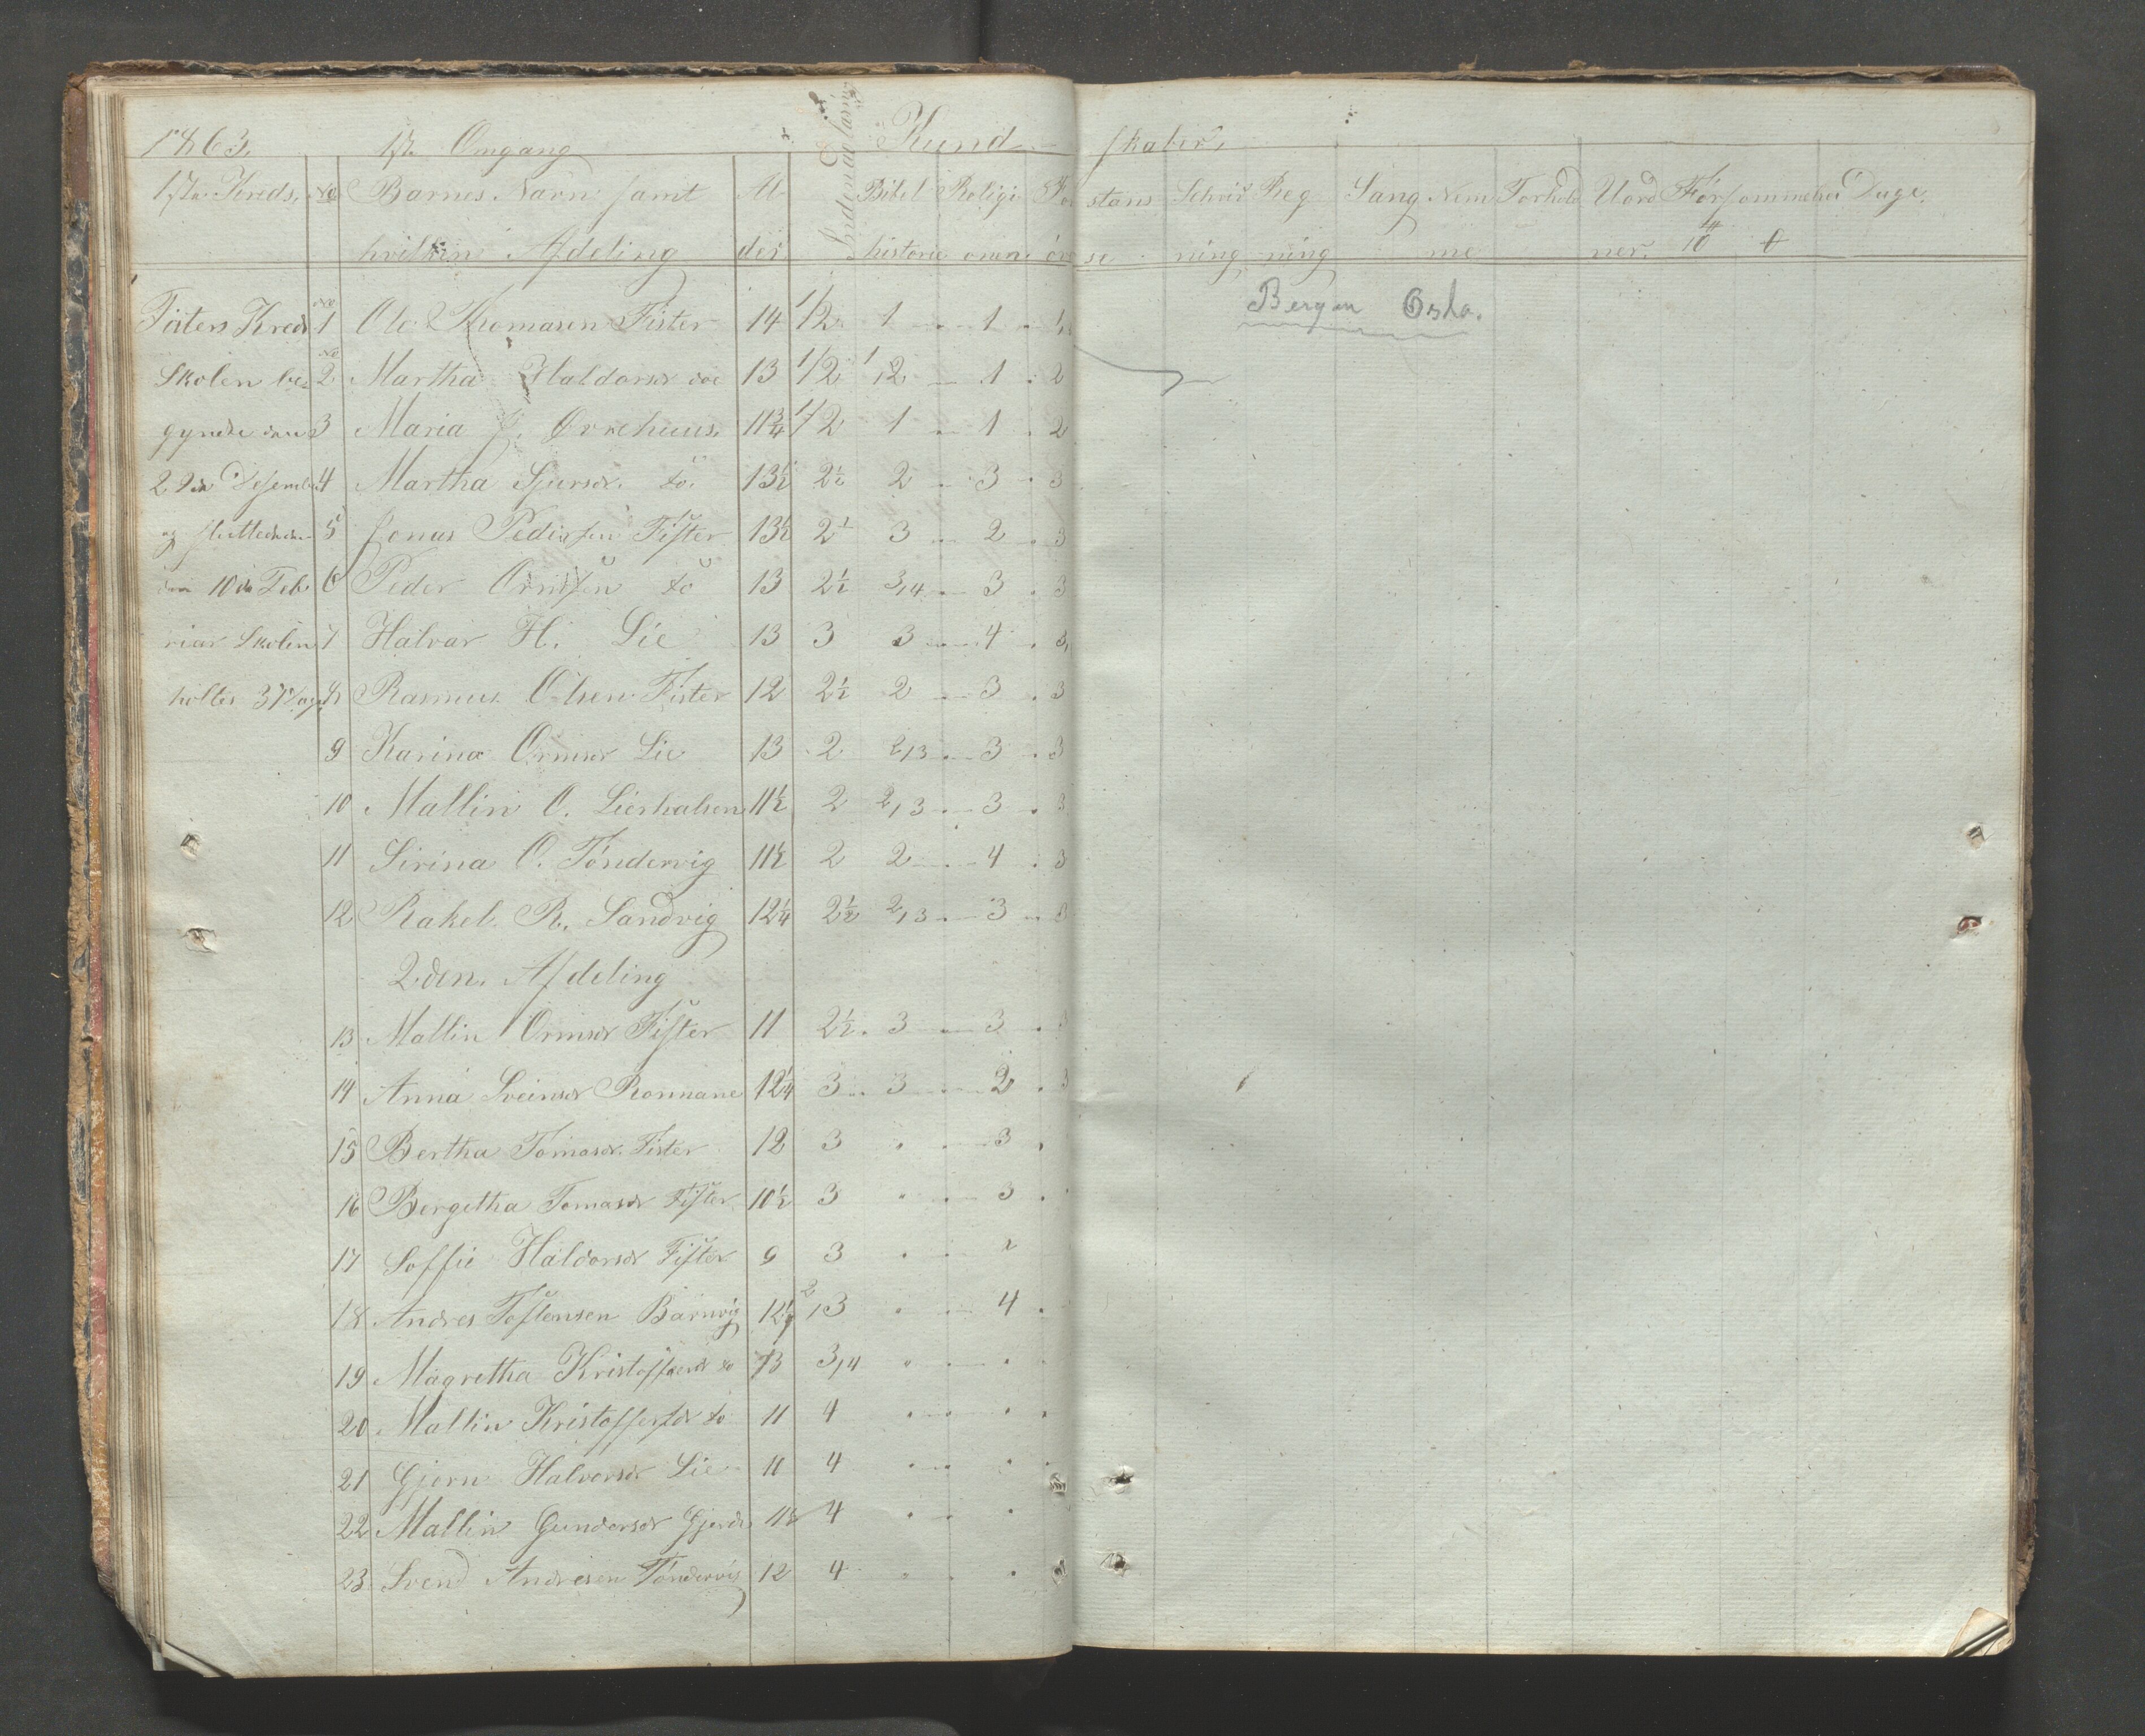 1863. 1ste Omgang Kund- skaber.
1ste Kreds. No Barnes Navn samt Al- Bibel Religi For stans Schriv Reg Sang Nem Forhold Uord Forsommelser Dage.
hvilken Afdeling der historie onen øve se ning ning me ner. 10
Fisters Kreds No 1 Ole Thomasen Fister 14 1/2 1 1 Bergen Oslo.
Skolen be No 2 Martha Haldorsdr do 13 1/2 1,2 1 2
gynde den 3 Maria J. Ørkehuus 11 3/4 1/2 1 1 2
22de Desember 4 Martha Sjursdr. do. 13½ 2½ 2 3 3
og sluttede 5 Jonas Pedersen Fister 13½ 2½ 3 2 3
den 10de Feb 6 Peder Ormsen do 13 2½ 3,4 3 3
riar Skolen 7 Halvar H. Lie 13 3 3 4 3
holtes 37 Dage 8 Rasmus Olsen Fister 12 2½ 2 3 3
9 Karina Ormsdr Lie 13 2 2,3 3 3
10 Mallin O. Lierhalsen 11½ 2 2,3 3 3
11 Sirina O. Tøndervig 11½ 2 2 4 3
12 Rakel R. Sandvig 12¼ 2½ 2,3 3 3
2den. Afdeling
13 Mallin Ormsdr Fister 11 2½ 3 3
14 Anna Sveinsdr Ronnane 12¼ 3 3 2 3
15 Bertha Tomasdr. Fister 12 3 3
16 Bergetha Tomasdr Fister 10½ 3 3
17 Soffie Haldorsdr Fister 9 3 2
18 Andres Tostensen Barnvig 12½ 2,3 4
19 Magretha Kristoffersdr do 13 3,4
20 Mallin Kristoffersdr do 11 4
21 Gjorn Halvorsdr Lie 11 4
22 Mallin Gundersdr Gjerde 11½ 4
23 Svend Andresen Tøndervig 12 4